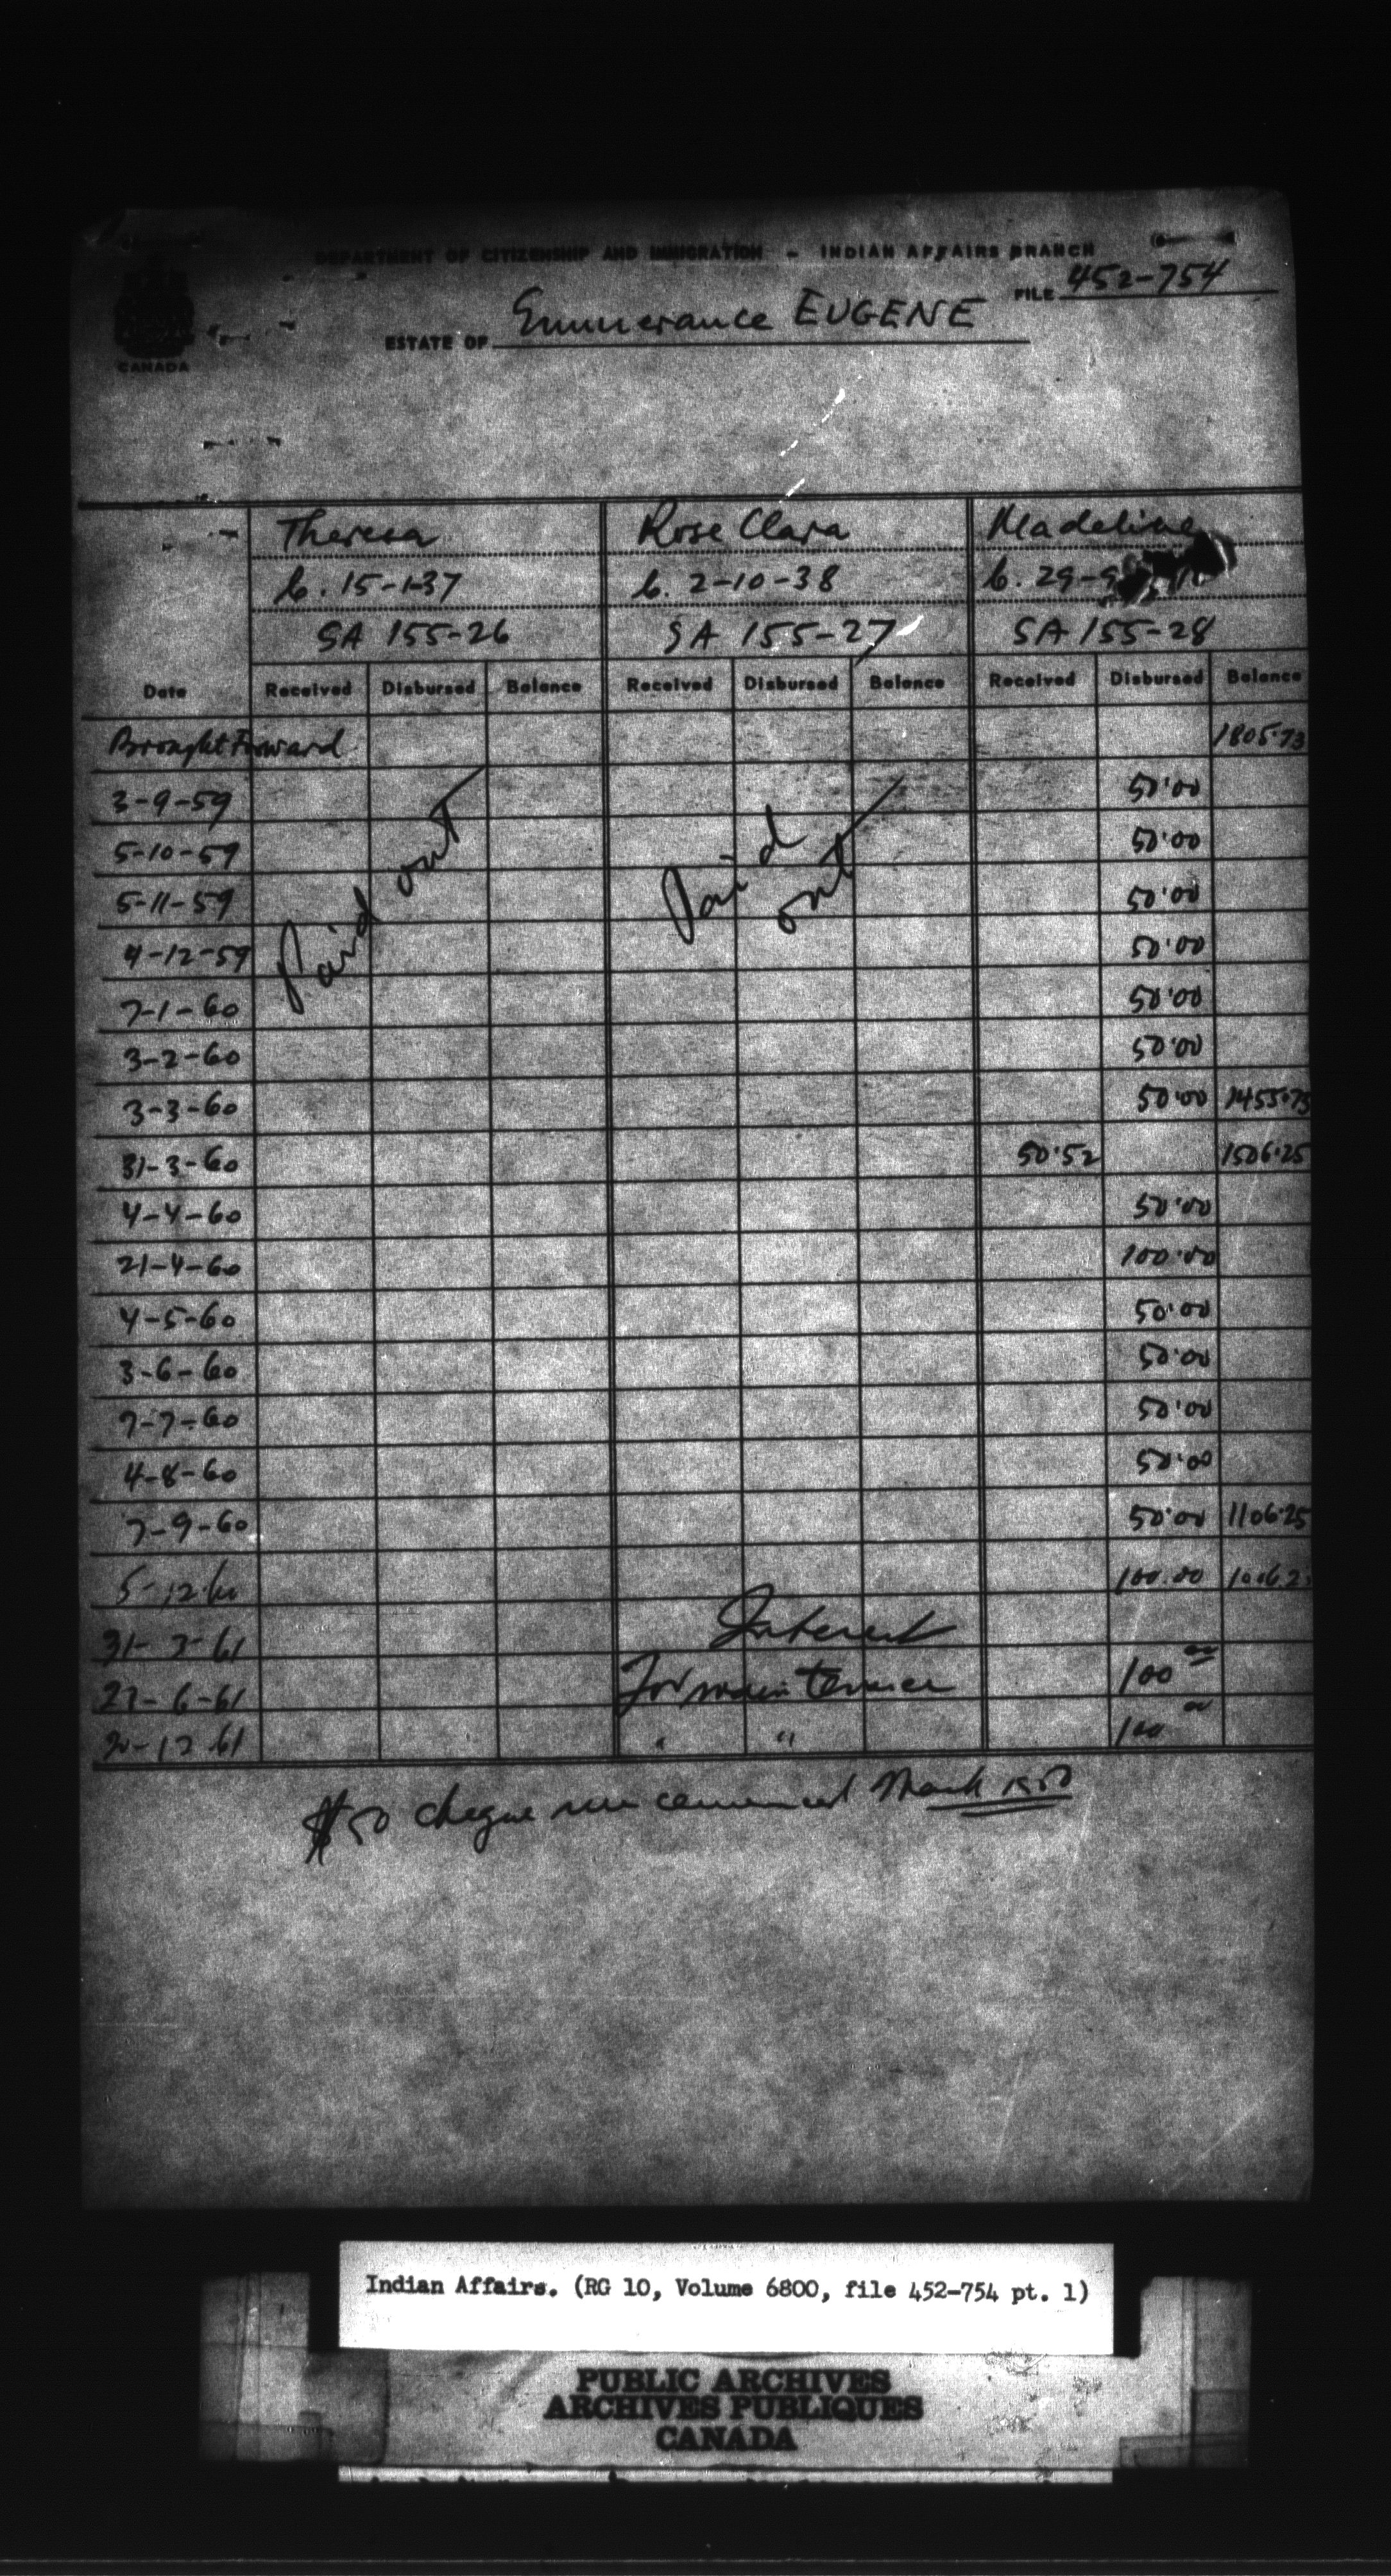 DEPARTMENT OF CITIZENSHIP AND IMMIGRATION - INDIAN AFFAIRS BRANCH
CANADA
FILE 452-754
ESTATE OF Emmerance EUGENE
Theresa Rose Clara Madeline
b. 15-1-37 b. 2-10-38 b. 29-9
SA 155-26 SA 155-27 SA 155-28
Date Received Disbursed Balance Received Disbursed Balance Received Disbursed Balance
Brought Forward 1805.73
3-9-59 50.00
5-10-59 50.00
5-11-59 50.00
4-12-59 50.00
7-1-60 50.00
Paid out Paid out
3-2-60 50.00
3-3-60 50.00 1455.73
31-3-60 50.52 1506.25
4-4-60 50.00
21-4-60 100.00
4-5-60 50.00
3-6-60 50.00
7-7-60 50.00
4-8-60 50.00
7-9-60 50.00 1106.25
5-12-60 100.00 1006.2
31-3-61 Interest
27-6-61 For maintenance 100 00
12-61 " " 100 00
$50 cheque March
Indian Affairs. (RG 10, Volume 6800, file 452-754 pt. 1)
PUBLIC ARCHIVES
ARCHIVES PUBLIQUES
CANADA